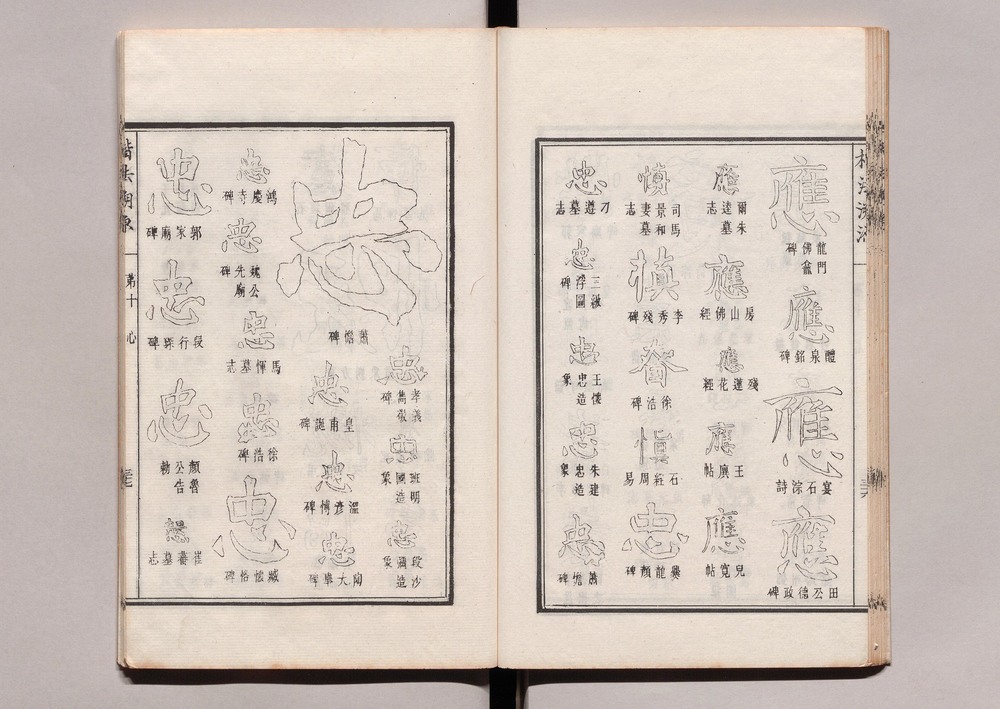 應
龍門佛龕碑
應
醴泉銘碑
應
宴石淙詩
應
田公德政碑
應
爾朱逵墓志
應
房山佛經
應
殘蓮花經
應
王廙帖
應
兒寬帖
慎
司馬景和妻墓志
慎
李秀殘碑
昚
徐浩碑
慎
石經周易
忠
爨龍顏碑
忠
刁遵墓志
忠
三級浮圖碑
忠
王忠造象
忠
朱忠建造象
忠
蕭憺碑
忠
蕭憺碑
忠
孝義雋敬碑
忠
班明國造象
忠
段沙彌造象
忠
皇甫誕碑
忠
溫彥博碑
忠
陶大舉碑
忠
鴻慶寺碑
忠
魏公先廟碑
忠
馬惲墓志
忠
徐浩碑
忠
臧懷恪碑
忠
郭家廟碑
忠
段行琛碑
忠
顏魯公告勅
崔蕃墓志
楷法溯源
第十
心